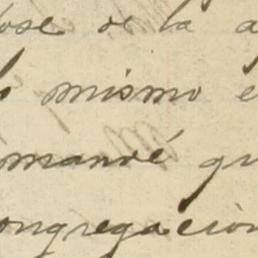 ose de la a
o mismo e
mandé qu
ongregación